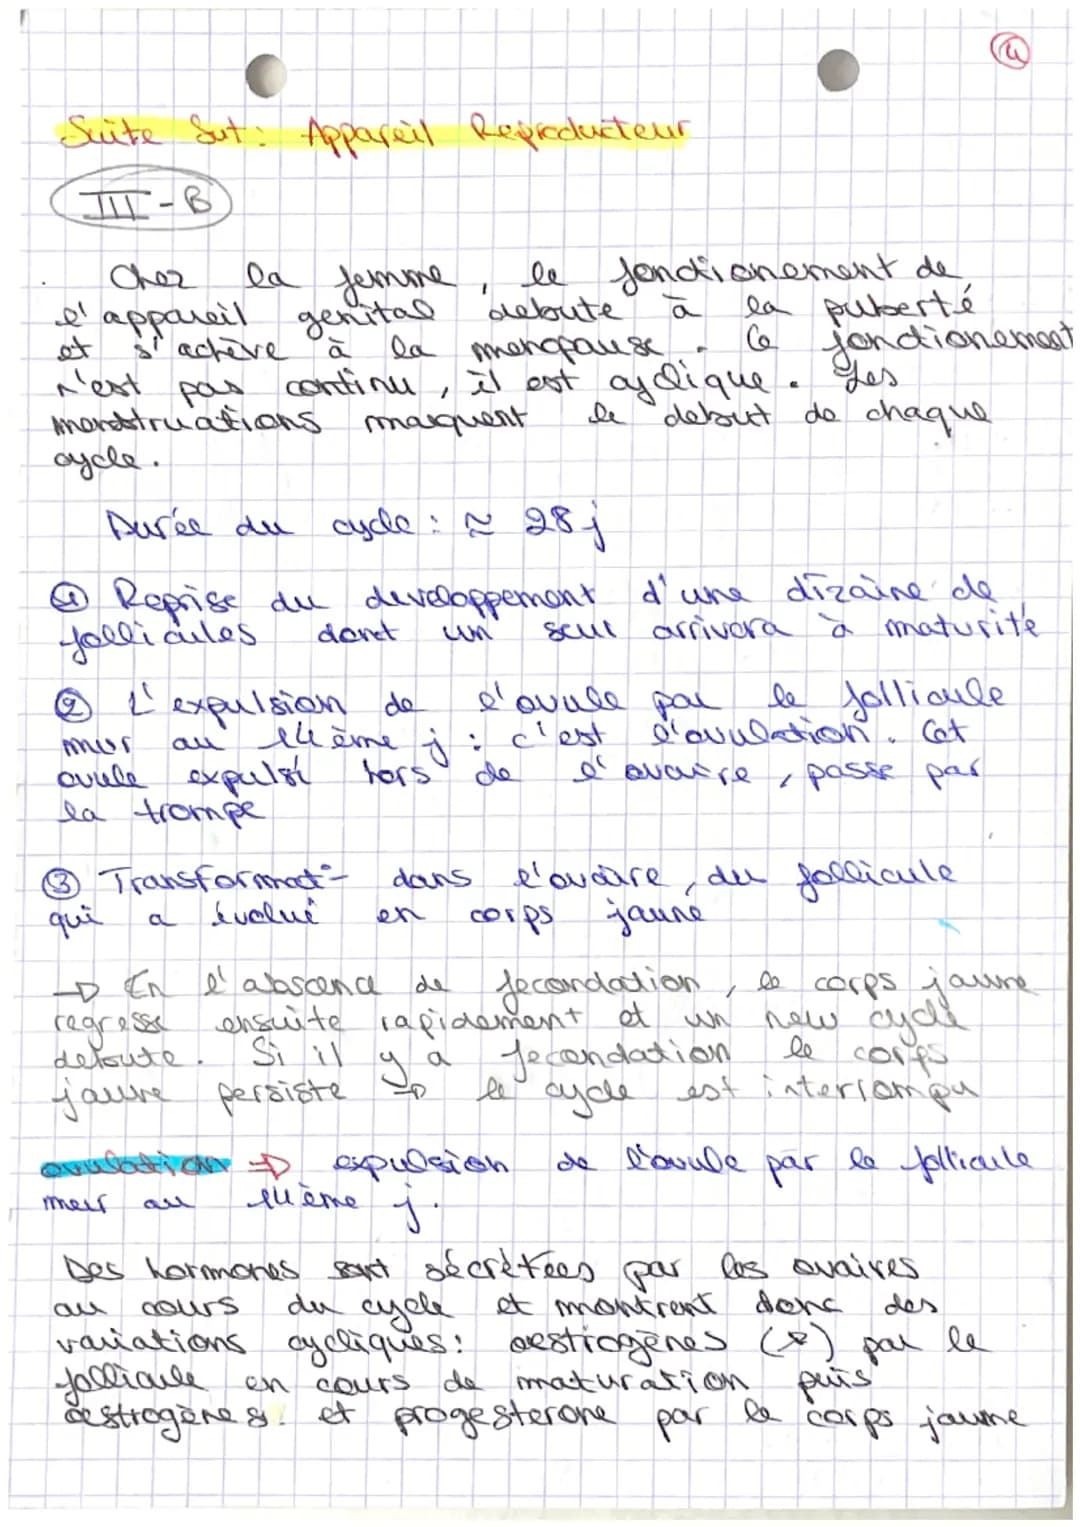 ④
Suite Svt : Appareil Reproducteur
III - B
Chez la femme, le fonctionement de
l'appareil genital debute à la puberté
et s'achève à la menopause. Ce fonctionement
n'est pas continu, il est cyclique. Les
menstruations marquent le debut de chaque
cycle.
Durée du cycle : ≈ 28 j
① Reprise du developpement d'une dizaine de
follicules dont un seul arrivera à maturité
② L'expulsion de l'ovule par le follicule
mur au 14ème j : c'est l'ovulation. Cet
ovule expulsé hors de l'ovaire, passe par
la trompe
③ Transformat° dans l'ovaire, du follicule
qui a évolué en corps jaune
→ En l'absence de fecondation, le corps jaune
regresse ensuite rapidement et un new cycle
debute. Si il y a fecondation le corps
jaune persiste → le cycle est interrompu
ovulation → expulsion de l'ovule par le follicule
mur au 14ème j.
Des hormones sont sécrétées par les ovaires
au cours du cycle et montrent donc des
variations cycliques : oestrogènes (*) par le
follicule en cours de maturation puis
oestrogènes et progesterone par le corps jaune